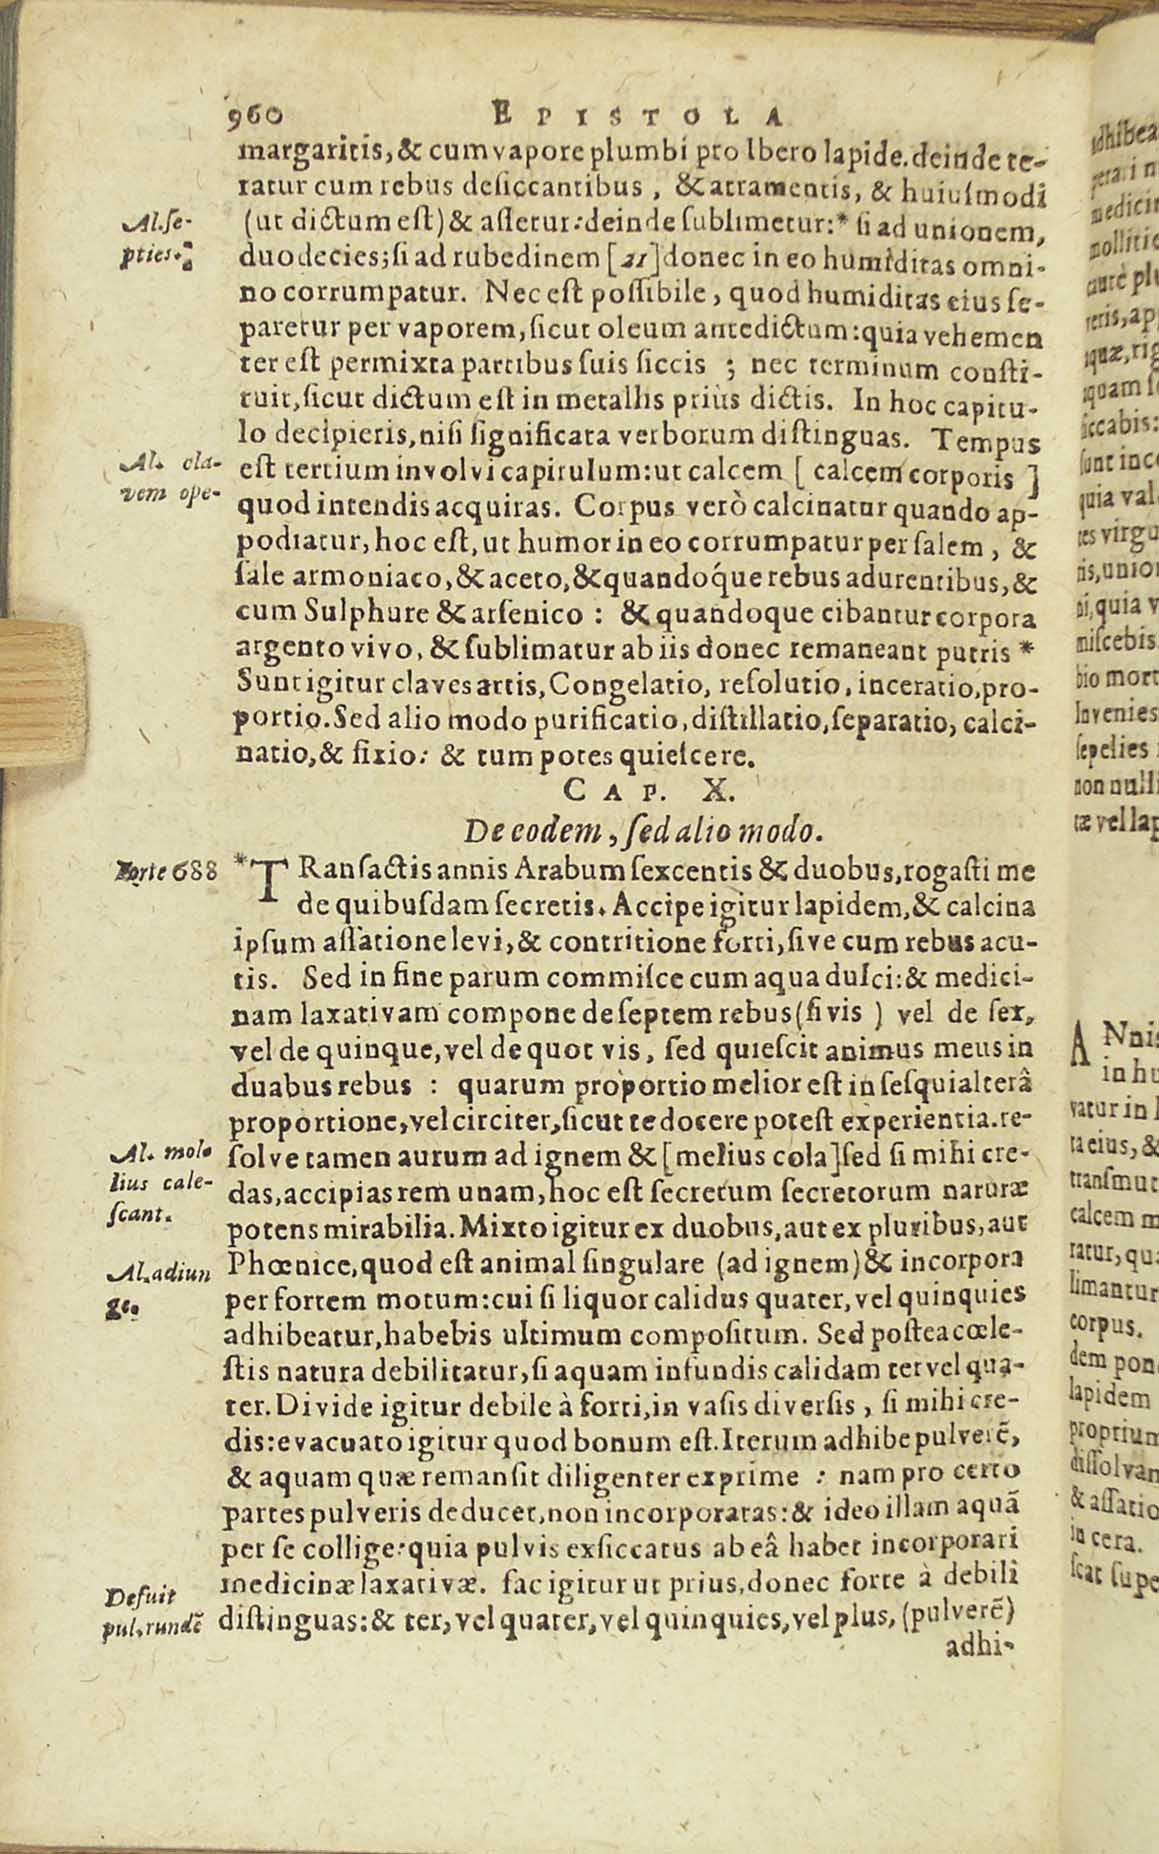 960 EPISTOLA
margaritis, & cum vapore plumbi pro lbero lapide. deinde te-
ratur cum rebus desiccantibus, & atramentis, & huiusmodi
(ut dictum est) & assetur: deinde sublimetur:* si ad unionem,
Al. se-
pties.
duodecies; si ad rubedinem [21] donec in eo humiditas omni-
no corrumpatur. Nec est possibile, quod humiditas eius se-
paretur per vaporem, sicut oleum antedictum: quia vehemen
ter est permixta partibus suis siccis ; nec terminum consti-
tuit, sicut dictum est in metallis priùs dictis. In hoc capitu-
lo decipieris, nisi significata verborum distinguas. Tempus
est tertium involvi capitulum: ut calcem [ calcem corporis ]
Al. cla-
vem ope-
quod intendis acquiras. Corpus verò calcinatur quando ap-
podiatur, hoc est, ut humor in eo corrumpatur per salem, &
sale armoniaco, & aceto, & quandoq́que rebus adurentibus, &
cum Sulphure & arsenico : & quandoque cibantur corpora
argento vivo, & sublimatur ab iis donec remaneant putris *
Sunt igitur claves artis, Congelatio, resolutio, inceratio, pro-
portio. Sed alio modo purificatio, distillatio, separatio, calci-
natio, & fixio: & tum potes quiescere.
CAP. X.
De eodem, sed alio modo.
Forte 688
*TRansactis annis Arabum sexcentis & duobus, rogasti me
de quibusdam secretis. Accipe igitur lapidem, & calcina
ipsum assatione levi, & contritione forti, sive cum rebus acu-
tis. Sed in fine parum commisce cum aqua dulci: & medici-
nam laxativam compone de septem rebus (si vis ) vel de sex,
vel de quinque, vel de quot vis, sed quiescit animus meus in
duabus rebus : quarum proportio melior est in sesquialterâ
proportione, vel circiter, sicut te docere potest experientia. re-
solve tamen aurum ad ignem & [melius cola] sed si mihi cre-
Al. mol-
lius cale-
scant.
das, accipias rem unam, hoc est secretum secretorum naturæ
potens mirabilia. Mixto igitur ex duobus, aut ex pluribus, aut
Phœnice, quod est animal singulare (ad ignem) & incorpora
Al. adiun
ge.
per fortem motum: cui si liquor calidus quater, vel quinquies
adhibeatur, habebis ultimum compositum. Sed postea cœle-
stis natura debilitatur, si aquam infundis calidam ter vel qua-
ter. Divide igitur debile à forti, in vasis diversis, si mihi cre-
dis: evacuato igitur quod bonum est. Iterum adhibe pulverẽ,
& aquam quæ remansit diligenter exprime : nam pro certo
partes pulveris deducet, non incorporatas: & ideo illam aquã
per se collige: quia pulvis exsiccatus ab eâ habet incorporari
medicinæ laxativæ. fac igitur ut prius, donec forte à debili
Defuit
pul. rundẽ
distinguas: & ter, vel quater, vel quinquies, vel plus, (pulverẽ)
adhi-